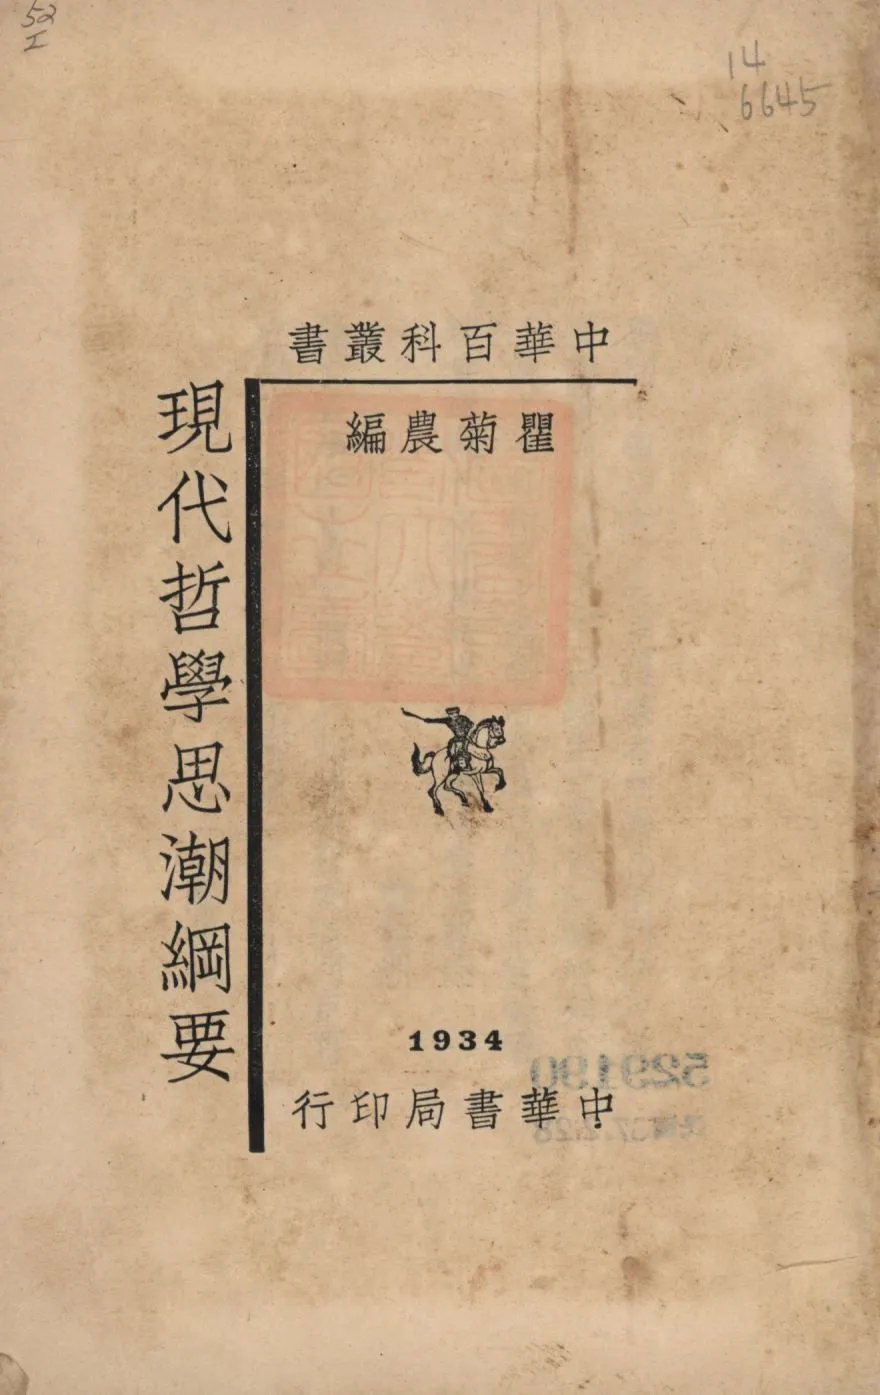 52
I
14
6645
中華百科叢書
瞿菊農編
現代哲學思潮綱要
1934
中華書局印行
529190